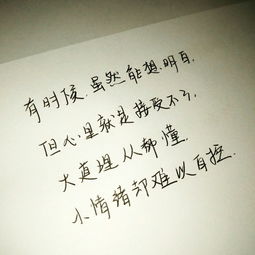 有时候.虽然能想明白.
但心里就是接受不了.
大道理人都懂.
小情绪却难以自控.